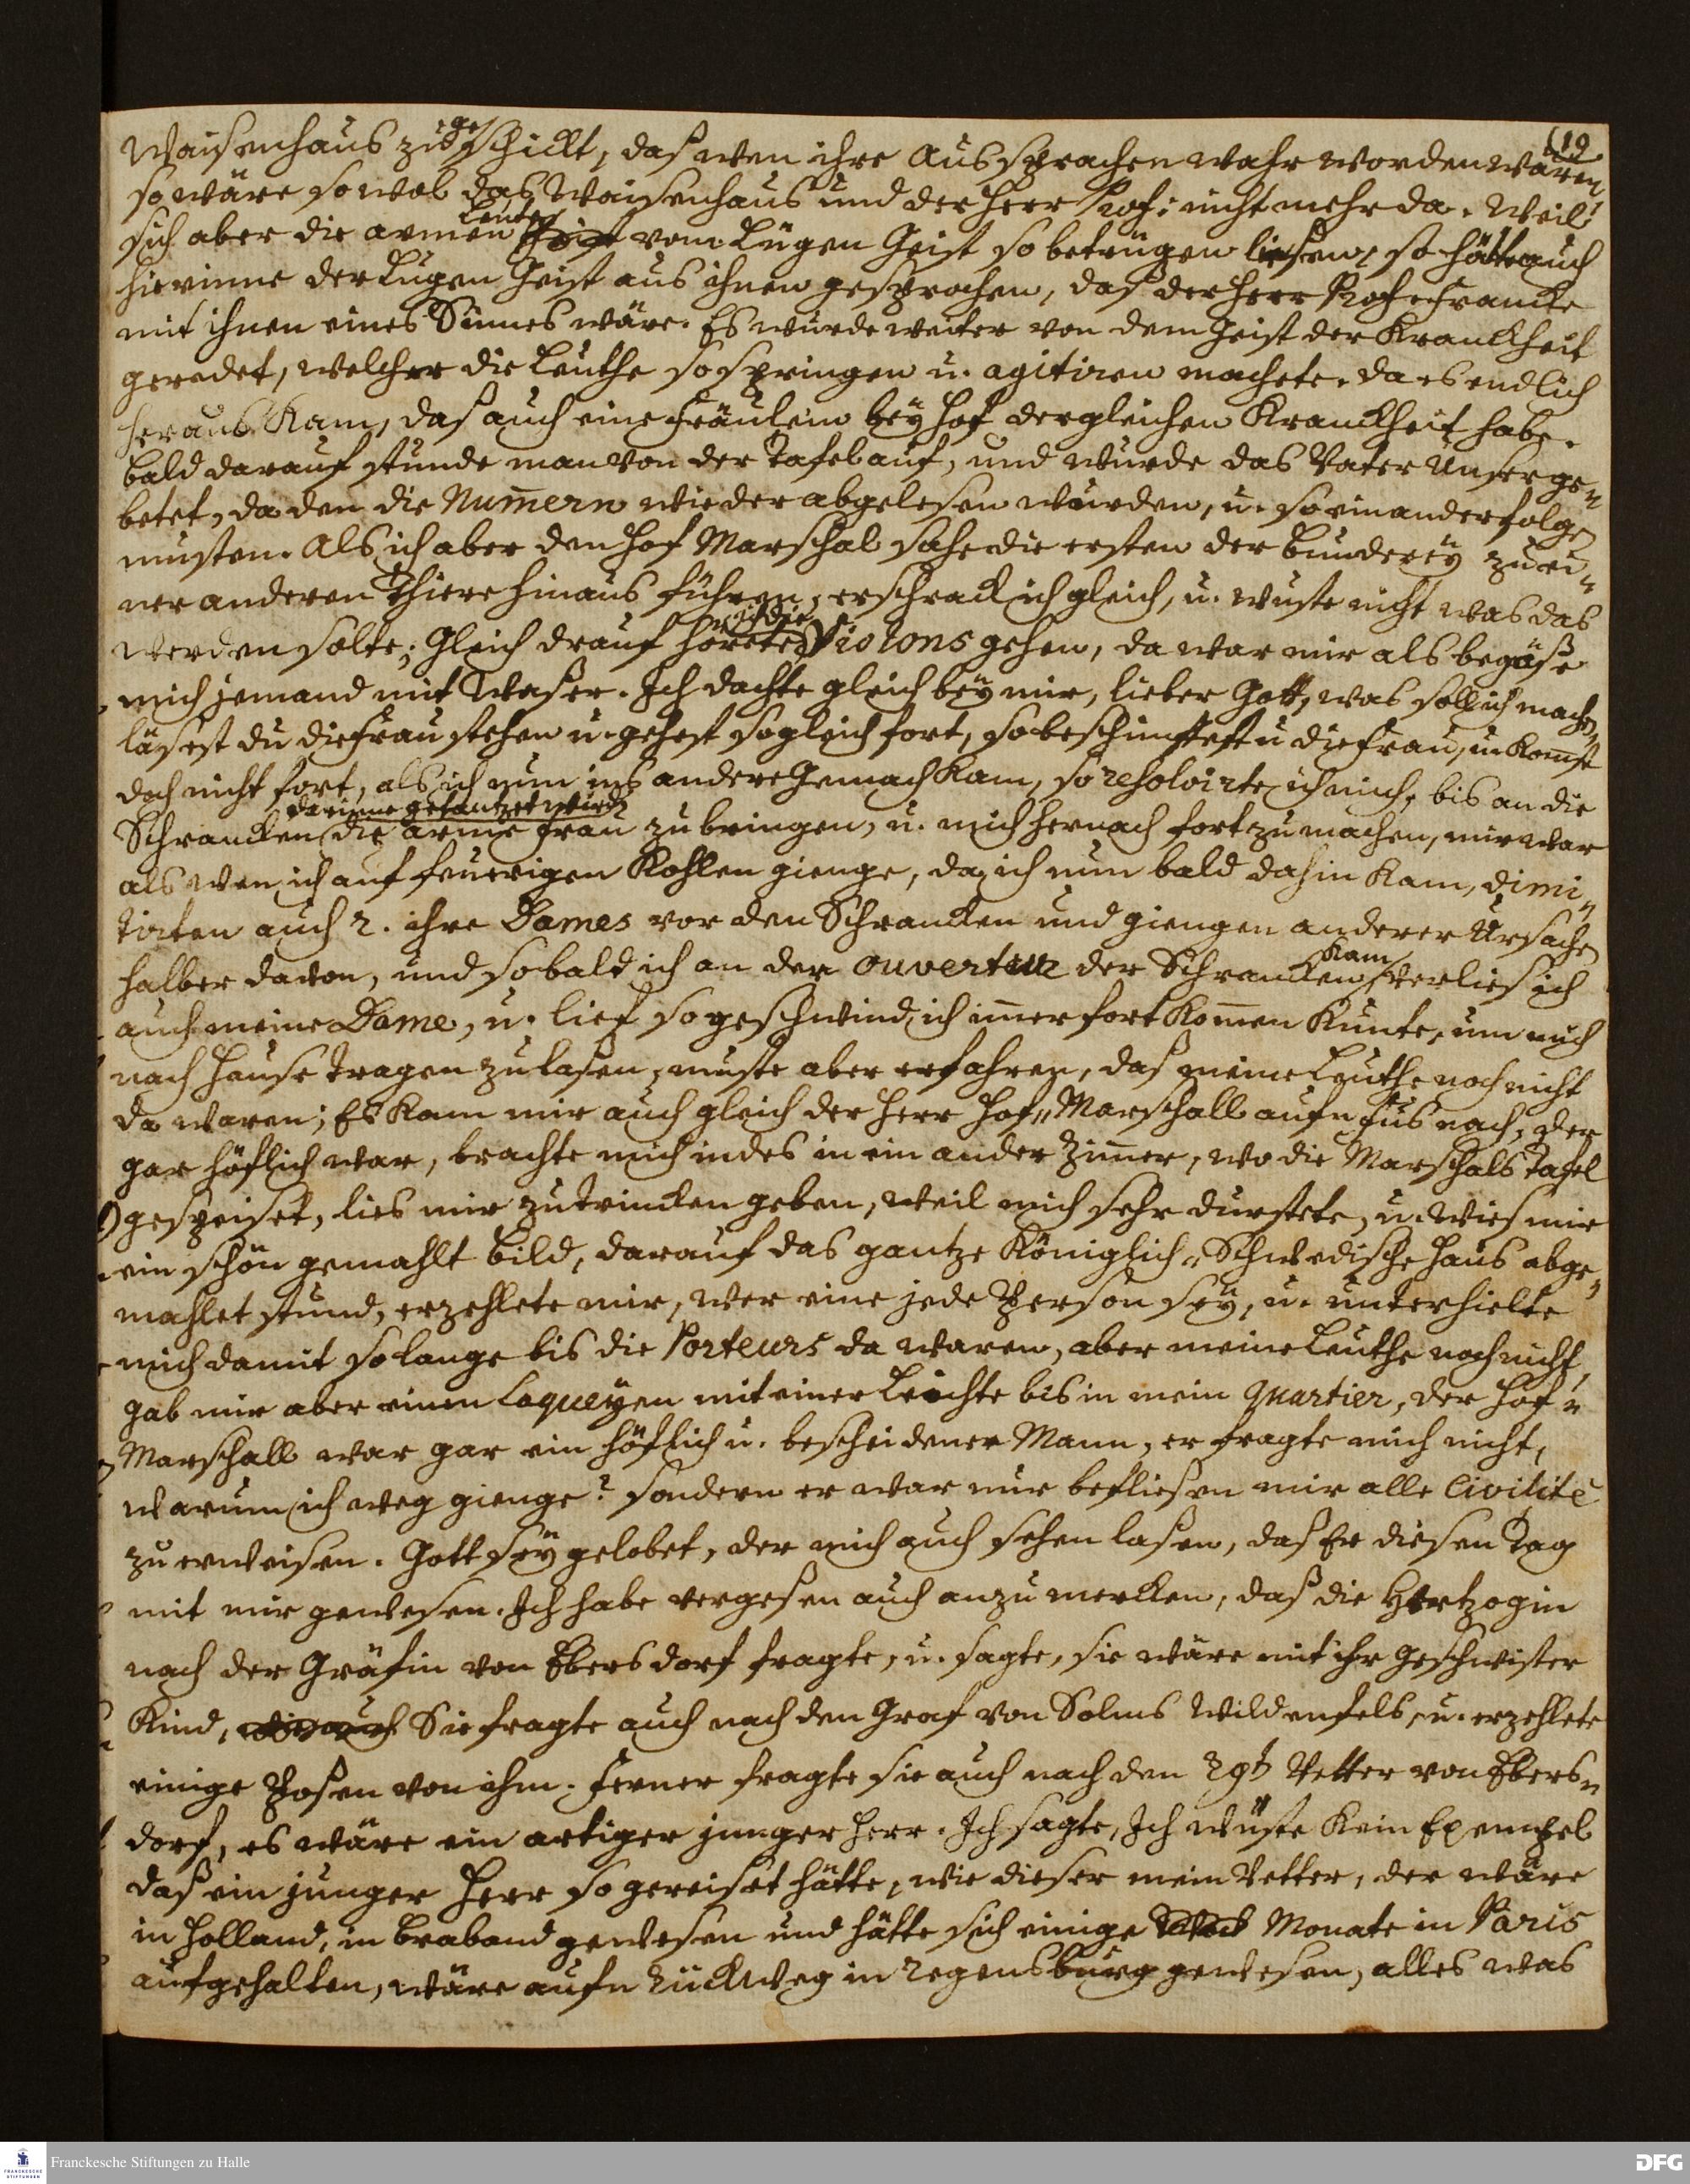 (19
Waisenhaus zugeschickt, daß wen ihre Aussprachen wahr worden wären,
so wäre so wol das Waisenhaus und der Herr Prof: nicht mehr da. Weil
sich aber die armen Leute vom Lügen Geist so betrügen liesen, so hätte auch
hierinne der Lügen Geist aus ihnen gesprochen, daß der Herr Prof. Francke
mit ihnen eines Sinnes wäre. Es wurde weiter von dem Geist der Kranckheit
geredet, welcher die Leuthe so springen u. agitiren machete, da es endlich
heraus Kam, daß auch eine Fräulein bey Hof dergleichen Kranckheit habe.
Bald darauf stunde man von der Tafel auf, und wurde das Vater Unser ge„
betet, da den die Num̅ern wieder abgelesen wurden, u. so einander folgen
musten. Als ich aber den Hof Marschal sahe die ersten der Bunderey zu ei„
ner anderen Thüre hinaus führen, erschrack ich gleich, u. wuste nicht was das
werden solte; Gleich drauf hörete ich die Violons gehen, da war mir als begöße
mich jemand mit Waßer. Ich dachte gleich bey mir, lieber Gott, was soll ich machen,
läsest du die Frau stehen u. gehest sogleich fort, so beschimpfest u die Frau, u. Kom̅st
doch nicht fort, als ich nun ins andere Gemach Kam, so resolvirte ich mich, bis an die
Schrancken darinne getantzet wird die arme Frau zu bringen, u. mich hernach fort zu machen, mir war
als wen ich auf feurigen Kohlen gienge, da ich nun bald dahin Kam, dimi„
tirten auch 2. ihre Dames vor den Schrancken und giengen anderer Ursache
halber davon, und so bald ich an der ouverteur der Schrancken Kam, verlies ich
auch meine Dame, u. lief so geschwind ich im̅er fort Kom̅en Kunte, um mich
nach Hause tragen zu lasen, muste aber erfahren, daß meine Leuthe noch nicht
da waren; Es Kam mir auch gleich der Herr Hof„Marschall aufn Fus nach, der
gar höflich war, brachte mich indes in ein ander Zim̅er, wo die Marschals Tafel
gespeiset, lies mir zu trincken geben, weil mich sehr durstete, u. wies mir
ein schön gemahlt Bild, darauf das gantze Königlich„Schwedische Haus abge„
mahlet stund, erzehlete mir, wer eine jede Person sey, u. unterhielte
mich damit so lange bis die Porteurs da waren, aber meine Leuthe noch nicht,
gab mir aber einen Laqueyen mit einer Leuchte bis in mein Quartier, der Hof„
Marschall war gar ein höflich u. bescheidener Mann, er fragte mich nicht,
warum ich weg gienge? sondern er war nur befliesen mir alle Civilité
zu erweisen. Gott sey gelobet, der mich auch sehen lasen, daß Er diesen Tag
mit mir gewesen. Ich habe vergesen auch anzumercken, daß die Hertzogin
nach der Gräfin von Ebersdorf fragte, u. sagte, sie wäre mit ihr Geschwister
Kind, Sie fragte auch nach den Graf von Solms Wildenfels, u. erzehlete
einige Posen von ihm. Ferner fragte sie auch nach den 29t Vetter von Ebers„
dorf, es wäre ein artiger junger Herr. Ich sagte, Ich wüste Kein Exempel
daß ein junger Herr so gereiset hätte, wie dieser mein Vetter, der wäre
in Holland, in Braband gewesen und hätte sich einige Monate in Paris
aufgehalten, wäre aufn Rückweg in Regensburg gewesen, alles was
Franckesche Stiftungen zu Halle
DFG